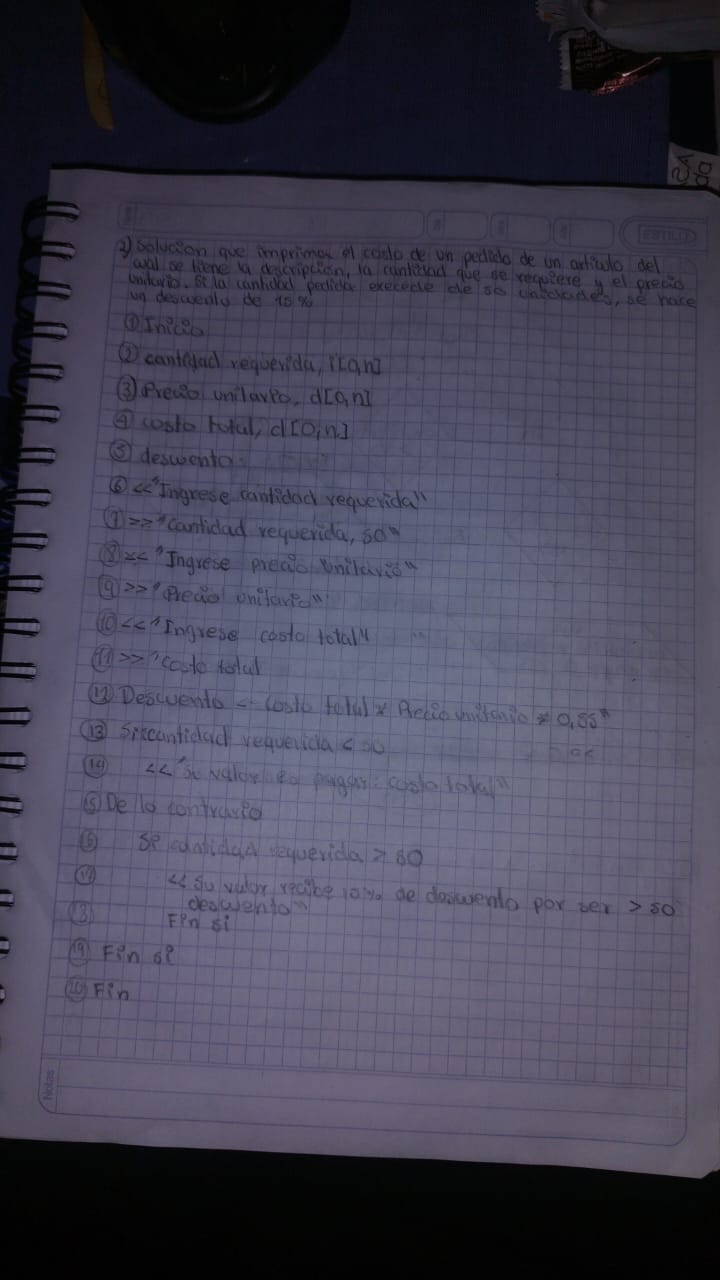 ESTILO
2) Solucion que imprima el costo de un pedido de un articulo del
cual se tiene la descripcion, la cantidad que se requiere y el precio
unitario. Si la cantidad pedida exècede de 50 unidades, se hace
un descuento de 15%
① Inicio
② cantidad requerida, i[0,n]
③ Precio unitario, d[0,n]
④ costo total, d[0,n]
⑤ descuento
⑥ <<"Ingrese cantidad requerida"
⑦ >>"Cantidad requerida, 50"
⑧ << "Ingrese precio Unitario"
⑨ >>"Precio unitario"
⑩ <<"Ingrese costo total"
⑪ >>"Costo total
⑫ Descuento <- Costo total * Precio unitario *
⑬ cantidad requerida < 50
⑭ << "Su valor a pagar: costo total"
⑮ De lo contrario
Si cantidad requerida > 50
⑰ << Su valor recibe de descuento por ser > 50
descuento"
⑱ Fin si
⑲ Fin si
⑳ Fin
Notas